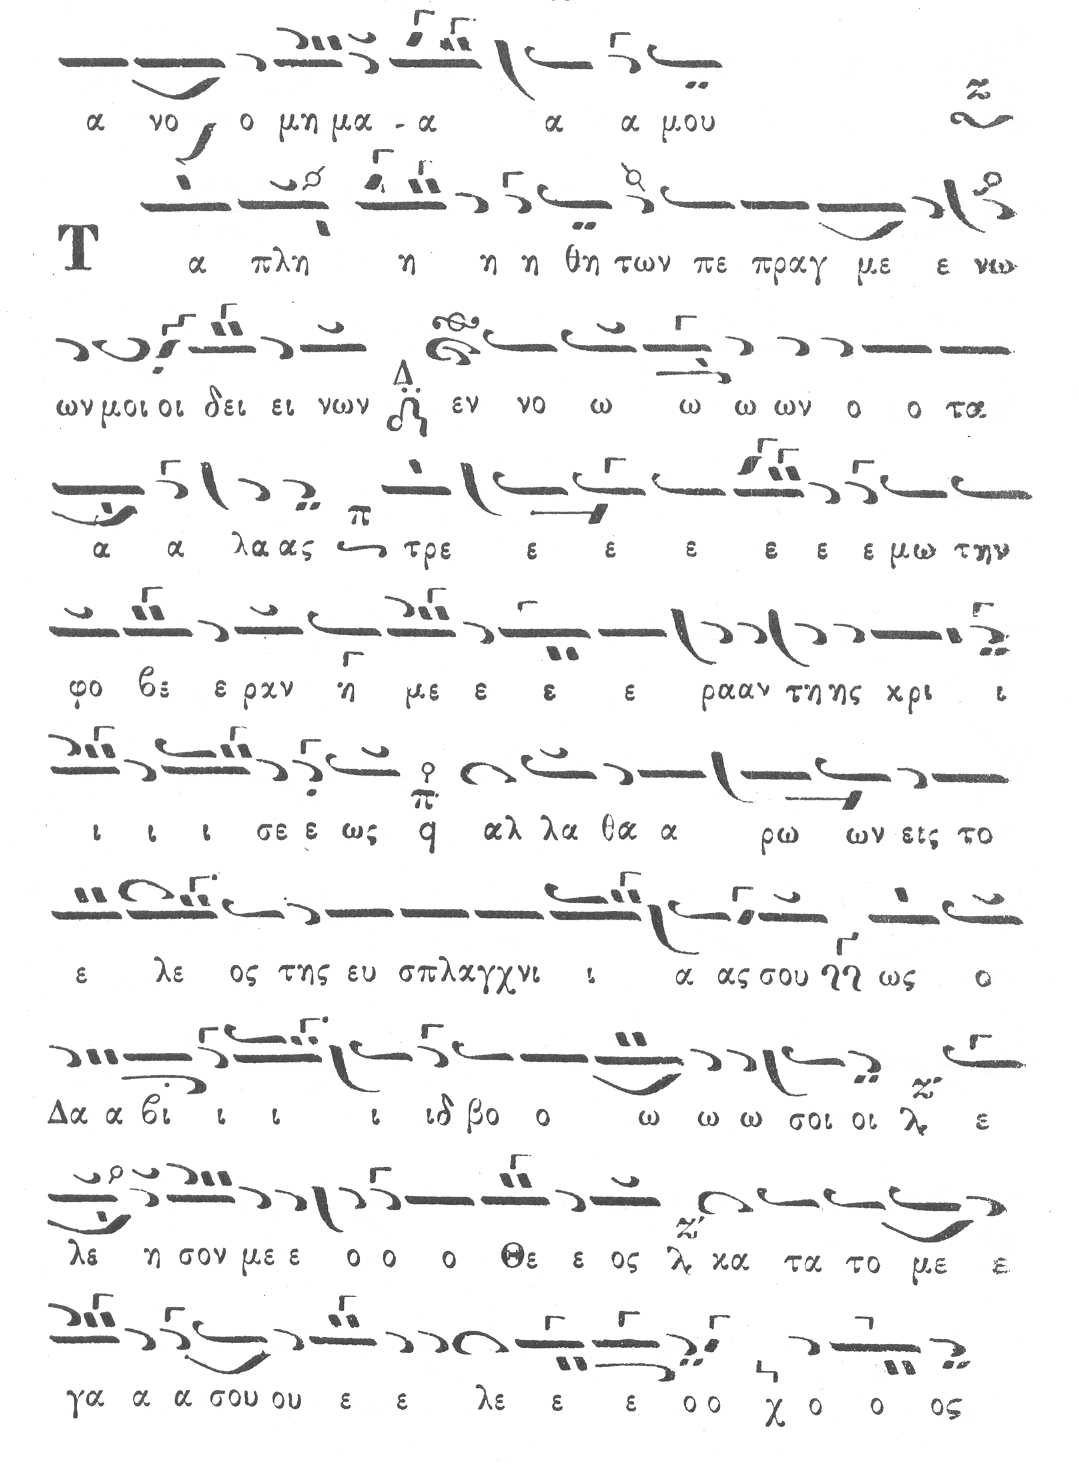 α νο ο μη μα - α α α μου
Τ α πλη η η η θη των πε πραγ με ε νω
ων μοι οι δει ει νων Δ εν νο ω ω ω ων ο ο τα
α α λα ας π τρε ε ε ε ε ε ε μω την
φο βε ε ραν η με ε ε ε ρααν τη ης κρι ι
ι ι ι σε ε ως π q αλ λα θα α ρω ων εις το
ε λε ος της ευ σπλαγχνι ι α ας σου ως ο
Δα α βι ι ι ι ιδ βο ο ω ω ω σοι οι ζ' ε
λε η σον με ε ο ο ο Θε ε ος ζ' κα τα το με ε
γα α α σου ου ε ε λε ε ε ο ο χ ο ο ος